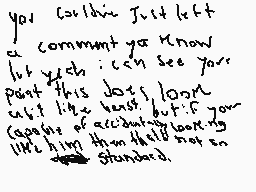 you couldve Just left
a comment ya know
but yeah i can see your
point this does look
a bit like beast but if your
capable of accidentaly looking
like him then thats not an
standard.